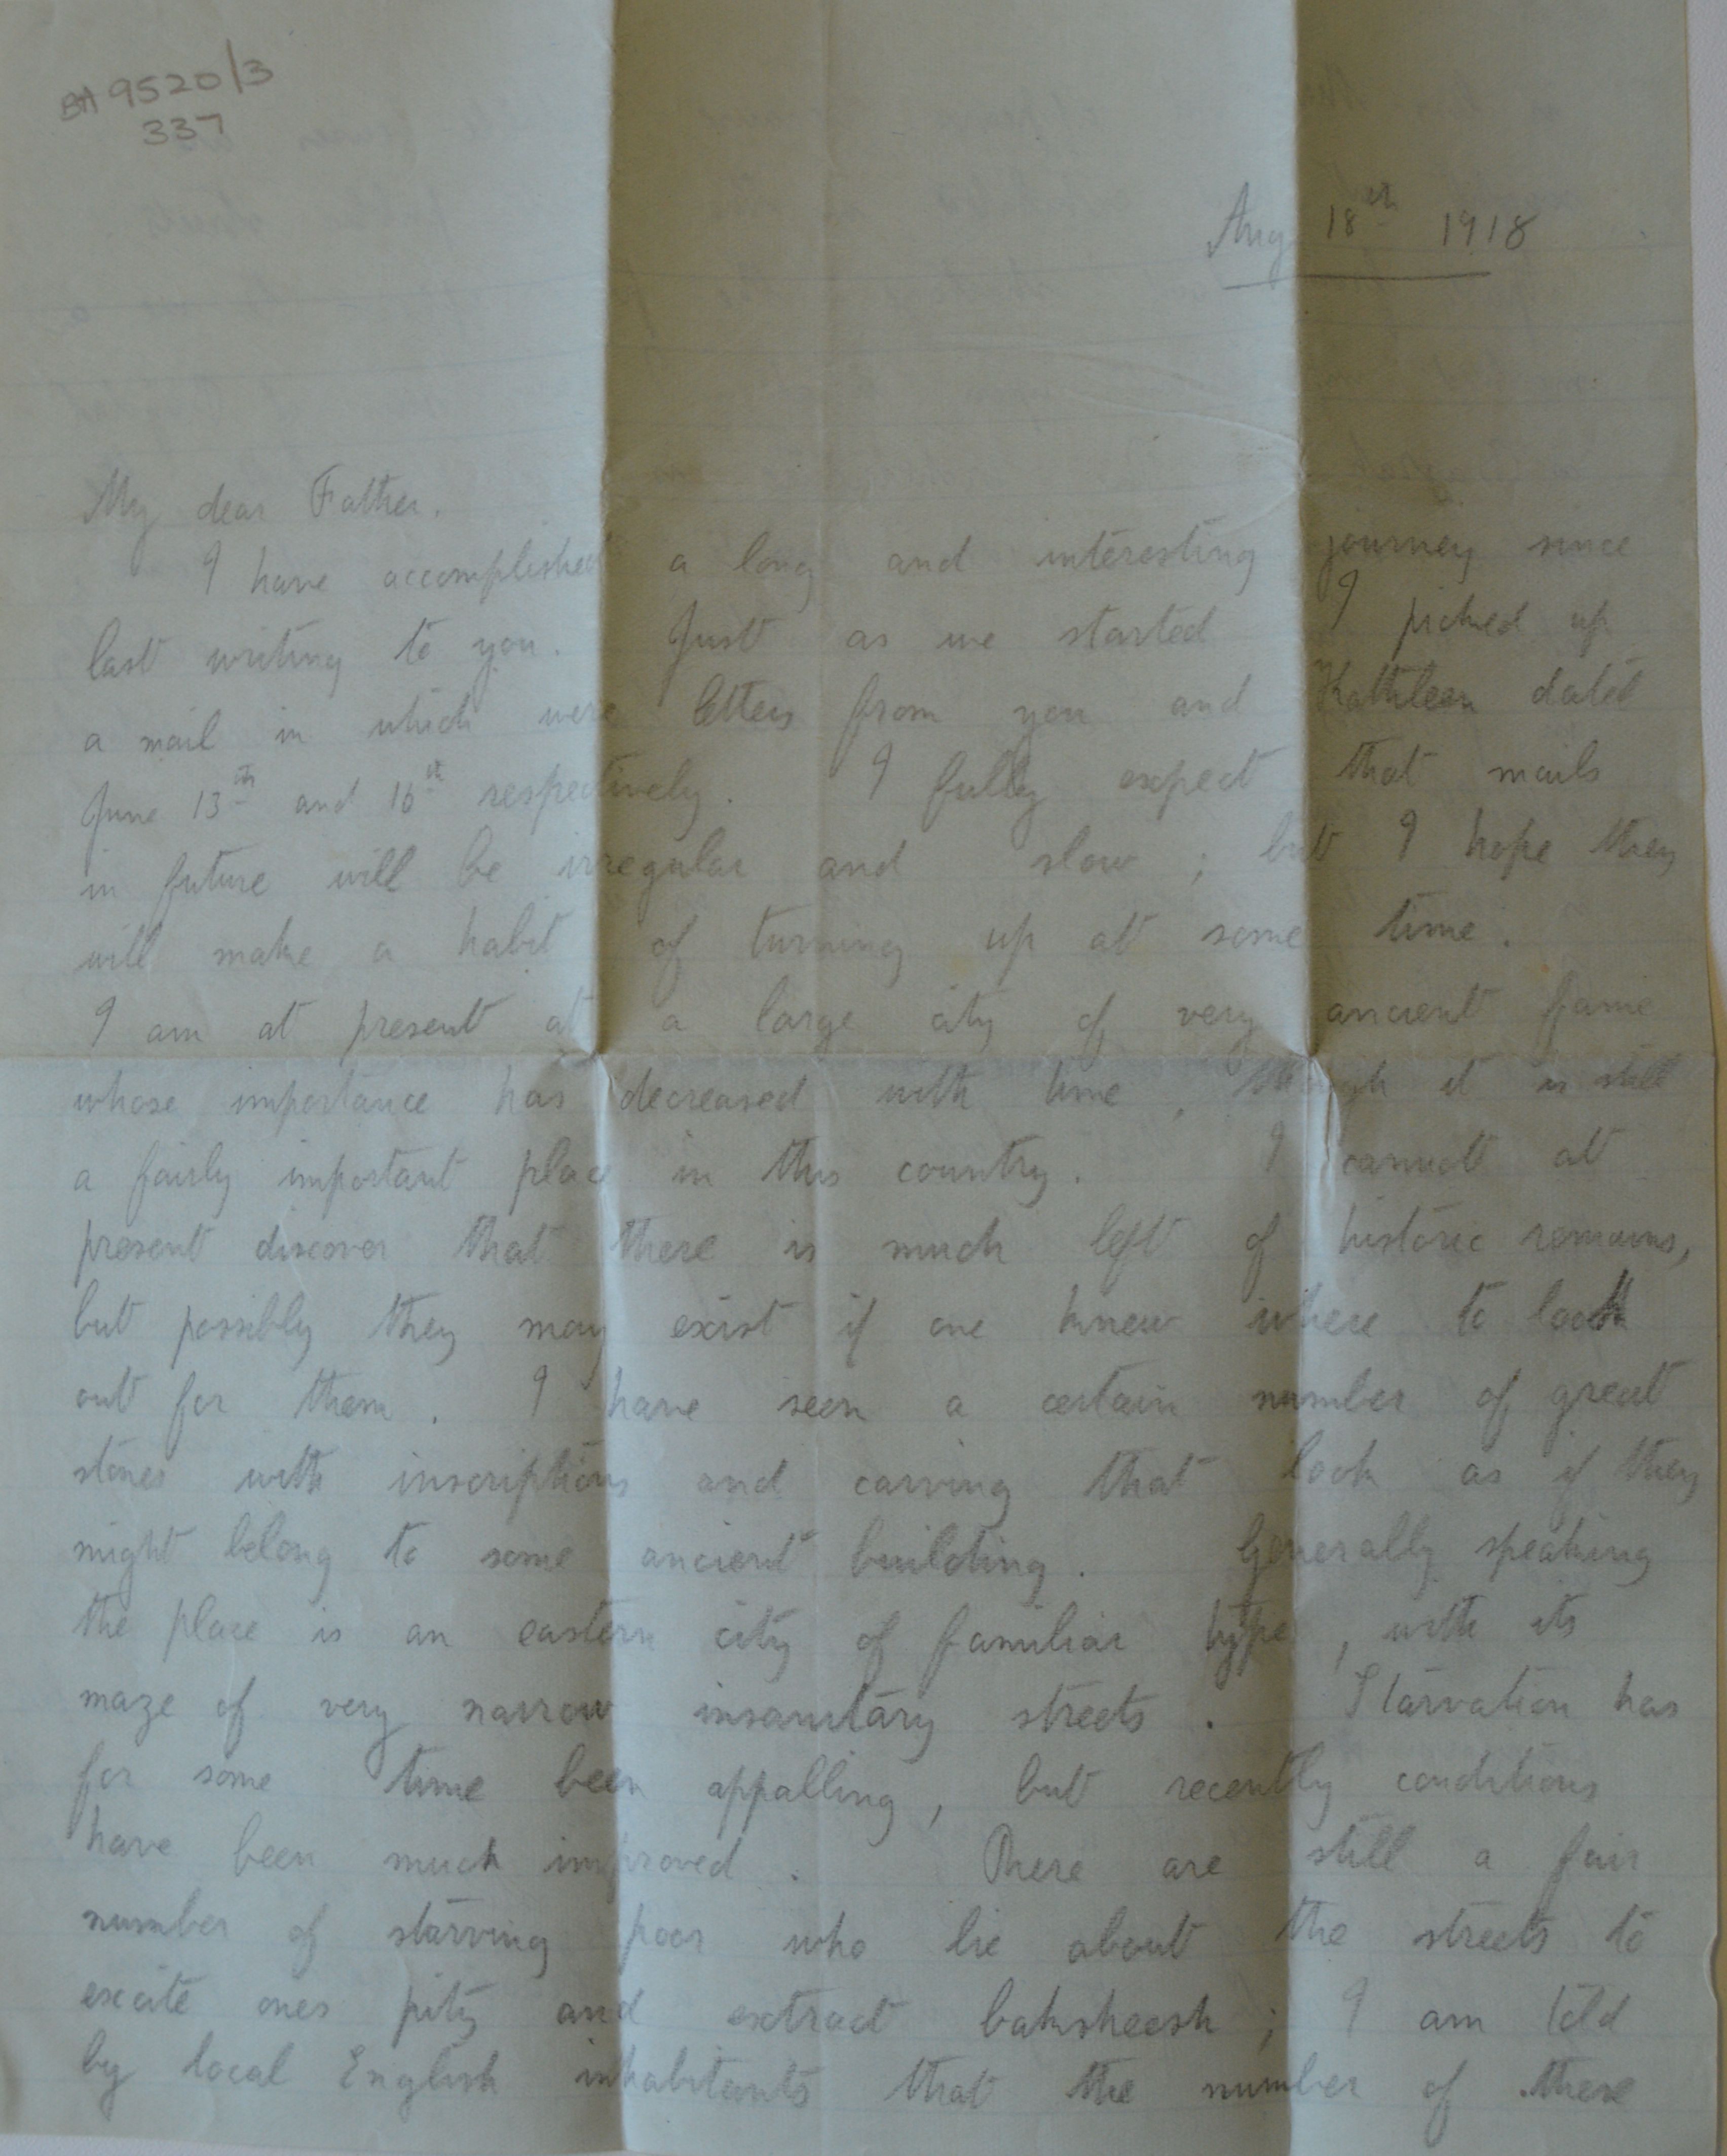 BA 9520/3
337
Aug 18th 1918
My dear Father.
I have accomplished a long and interesting journey since
last writing to you. Just as we started I picked up
a mail in which were letters from you and Kathleen dated
June 13th and 16th respectively. I fully expect that mails
in future will be irregular and slow ; but I hope they
will make a habit of turning up at some time.
I am at present at a large city of very ancient fame
whose importance has decreased with time, though it is still
a fairly important place in this country. I cannot at
present discover that there is much left of historic remains,
but possibly they may exist if one knew where to look
out for them. I have seen a certain number of great
stones with inscriptions and carving that look as if they
might belong to some ancient building. Generally speaking
the place is an eastern city of familiar type, with its
maze of very narrow insanitary streets. Starvation has
for some time been appalling, but recently conditions
have been much improved. There are still a fair
number of starving poor who lie about the streets to
excite ones pity and extract baksheesh ; I am told
by local English inhabitants that the number of these